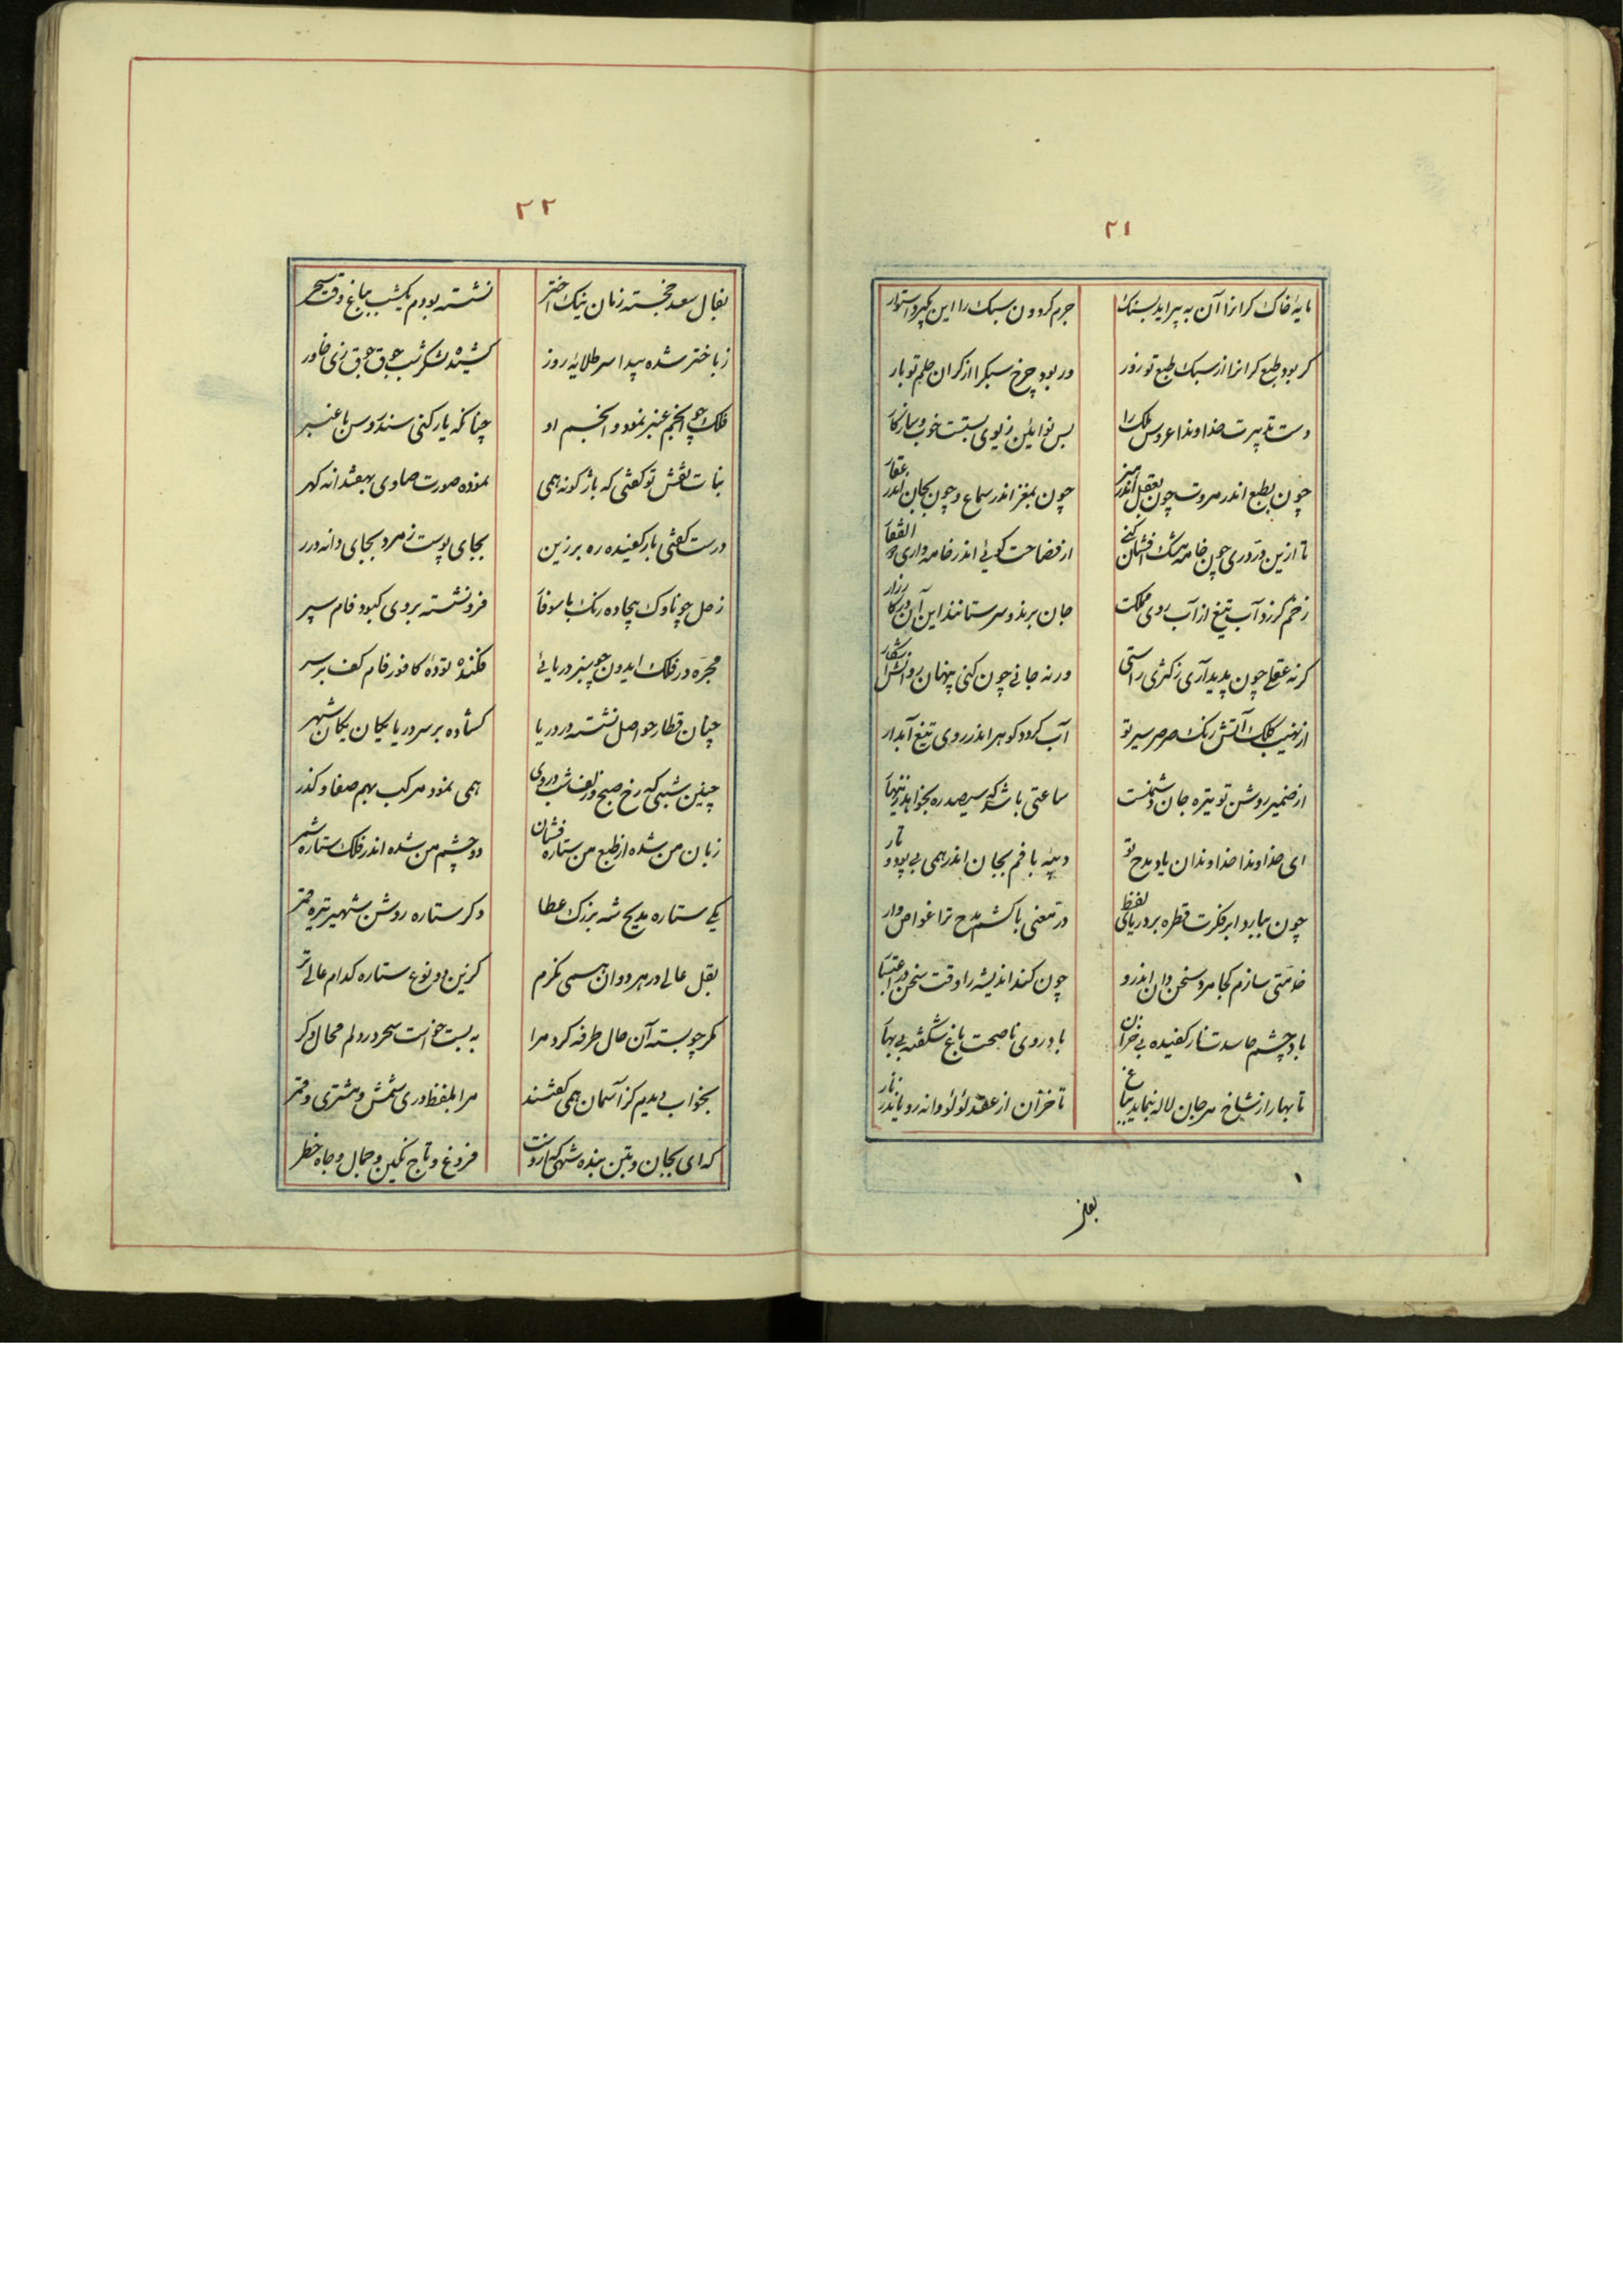 ۲۱
مایهٔ خاک کرانرا آن به پیراید بسنک جرم کردون سبک را این بگیرد استوار
کر بود طبع کرانرا از سبک طبع تو زور ور بود چرخ سبکرا از کران حلم تو بار
دست تدبیرت خداوندا عروس ملک را بس نوآئین زیوری بستست خوب و سازکار
چون بطبع اندر مروت چون بعقل اندر هنر چون بمغز اندر سماع و چون بجان اندر عقار
تا ازین در دری چون خامه مشک افشان کنی از فصاحت کوئی اندر خامه داری ذو الفقار
زخم کرزد آب تیغ از آب روی مملکت جان برند و سر ستانند این آن در کارزار
کر نه عقلی چون پدید آری ز کژی راستی ور نه جانی چون کنی پنهان روانش آشکار
از نهیب کلک آتش رنک صرصر سیر تو آب کردد کوهر اندر روی تیغ آبدار
از ضمیر روشن تو تیره جان دشمنست ساعتی باشد که سیصد ره بخواهد زینهار
ای خداوندا خداوندان یاد مدح تو دیبه بافم بجان اندر همی بی پود و تار
چون ببارد ابر فکرت قطره بر دریای لفظ در معنی باکشم مدح ترا غواص وار
خدمتی سازم کجا مرد سخن دان اندرو چون کند اندیشه را وقت سخن در اعتبار
باد چشم حاسدت نار کفیده بی خزان باد روی ناصحت باغ شکفته بی بهار
تا بهار از شاخ مرجان لاله بنماید بباغ تا خزان از عقد لؤلؤ دانه رویاند ز نار
بفال
۲۲
بفال سعد خجسته زمان نیک اختر نشسته بودم یکشب بباغ وقت سحر
ز باختر شده پیدا سر طلایهٔ روز کشیده لشکر شب جوق جوق زی خاور
فلک چو انجم عنبر نمود و انجم او چنانکه یار کنی سندروس با عنبر
بنات نعش تو کفتی که باژ کونه همی نموده صورت صاوی بهفتدانه کهر
درست کفتی بار کفیده ره بر زین بجای پوست زمرد بجای دانه درر
زحل چو ناوک بیجاده رنک با سوفار فرو نشسته بروی کبود فام سپر
مجره در فلک ایدون چو پنبر دریائی فکنده تودهٔ کافور فام کف بر سر
چنان قطار حواصل نشسته در دریا کشاده بر سر دریا یکان یکان شهپر
چنین شبی که رخ صبح و زلف شب در وی همی نمود مرکب بهم صفا و کذر
زبان من شده از طبع من ستاره فشان دو چشم من شده اندر فلک ستاره شمر
یکی ستاره مدیح شه بزرک عطا دکر ستاره روشن شهیر تیره قمر
بقل عالی در هر دوان همی نکرم کزین دو نوع ستاره کدام عالی تر
مکر چو بسته آن حال طرفه کرد مرا به بست خواست سحر در دلم محال دکر
بخواب دیدم کز آسمان همی کفتند مرا بلفظ دری شمس و مشتری و قمر
که ای بجان و بتن بنده شهی که ازوست فروغ و تاج نکین و جمال و جاه خطر